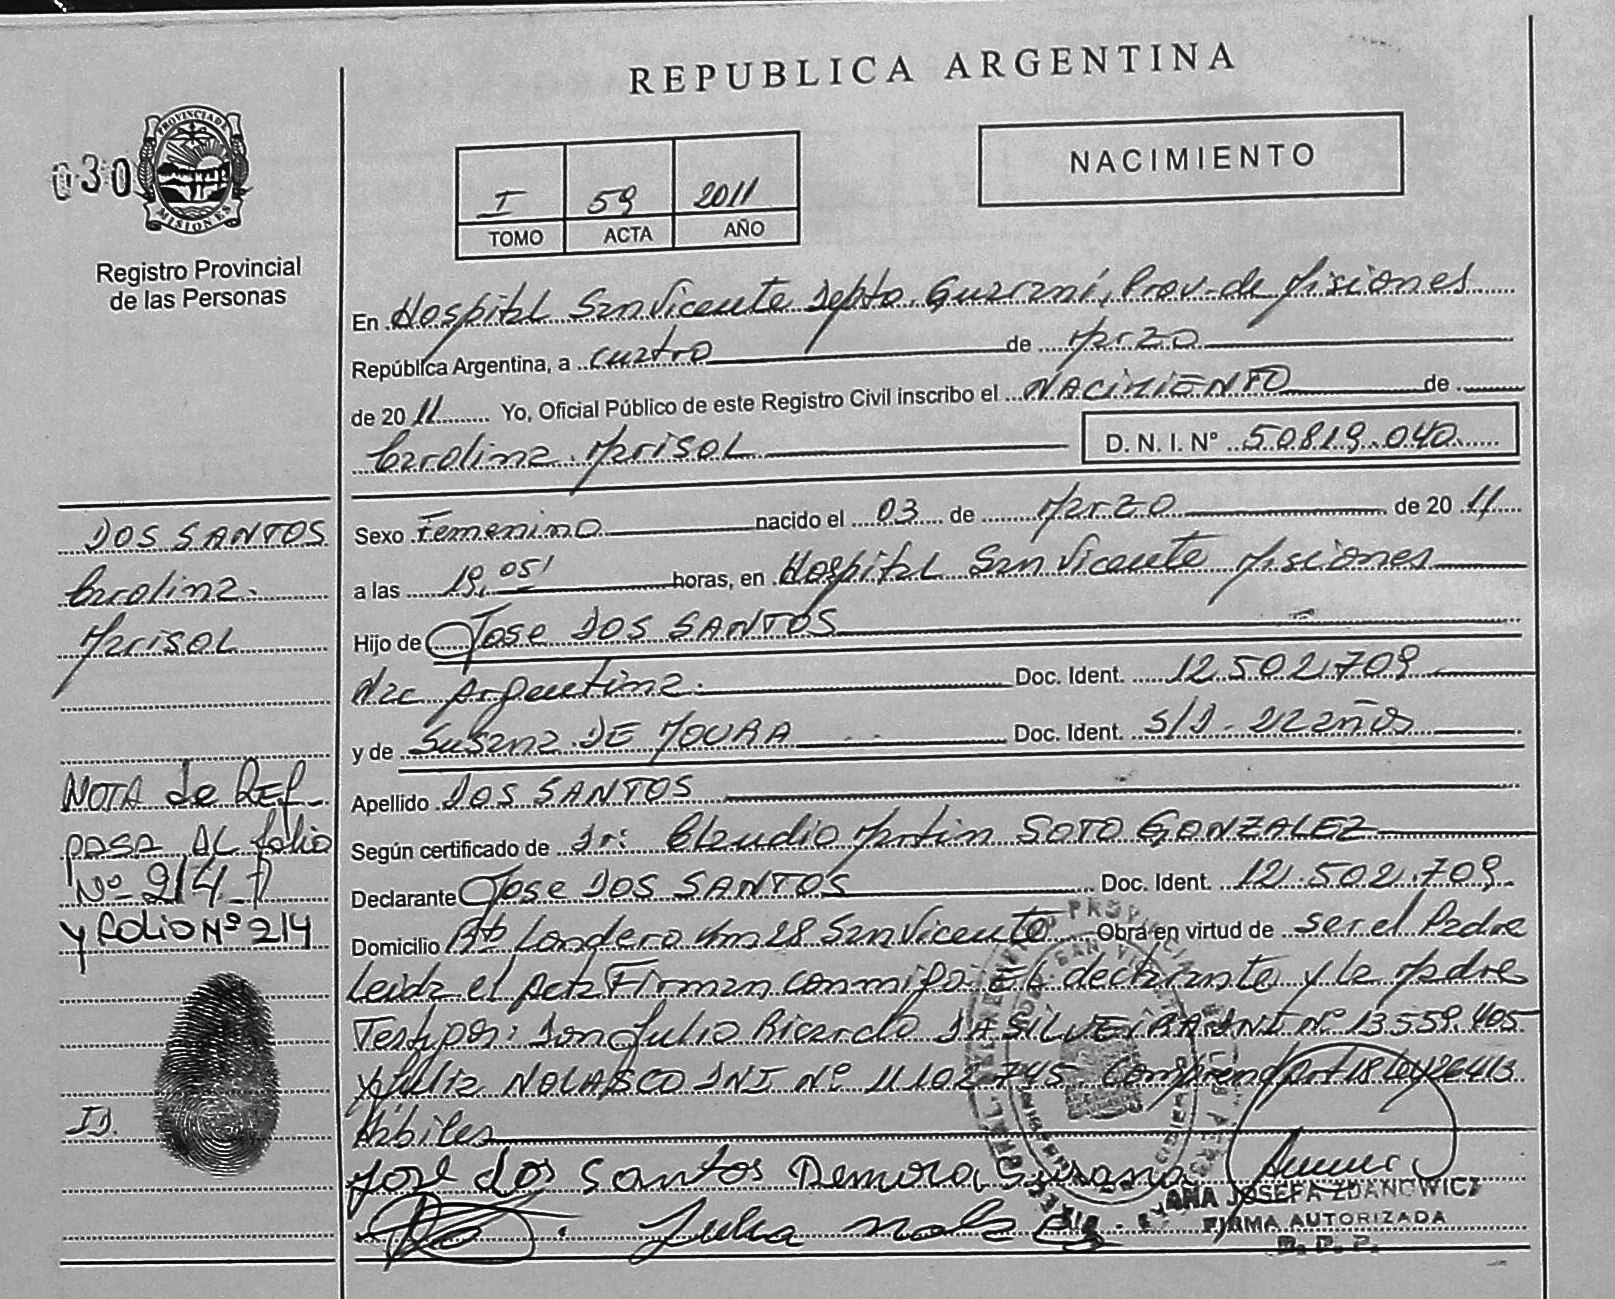 REPUBLICA ARGENTINA
030
PROVINCIA DE
MISIONES
Registro Provincial
de las Personas
I 59 2011
TOMO ACTA AÑO
NACIMIENTO
En Hospital San Vicente Depto. Guaraní, Prov. de Misiones
República Argentina, a cuatro de Marzo
de 2011 Yo, Oficial Público de este Registro Civil inscribo el NACIMIENTO de
Carolina Marisol D. N. I. Nº 50.819.040
Sexo Femenino nacido el 03 de Marzo de 2011
a las 19,05' horas, en Hospital San Vicente Misiones
Hijo de Jose DOS SANTOS
Nac Argentina. Doc. Ident. 12.502.709
y de Susana DE MOURA Doc. Ident. S/D - 22 años
Apellido DOS SANTOS
Según certificado de Dr: Claudio Martin SOTO GONZALEZ
Declarante Jose DOS SANTOS Doc. Ident. 12.502.709
Domicilio Landero Km 28 San Vicente Obra en virtud de ser el Padre
Leida el Acta Firman conmigo El declarante y la Madre
Testigos: Don Julio Ricardo DA SILVEIRA DNI Nº 13.559.405
y Julia NOLASCO DNI Nº 11.102.745
Hábiles
Jose dos Santos Demora Susana
Julia
ANA JOSEFA ZDANOWICZ
FIRMA AUTORIZADA
D. P. P.
DOS SANTOS
Carolina.
Marisol
NOTA de REF_
PASA AL folio
Nº 214
y folio Nº 214
ID.